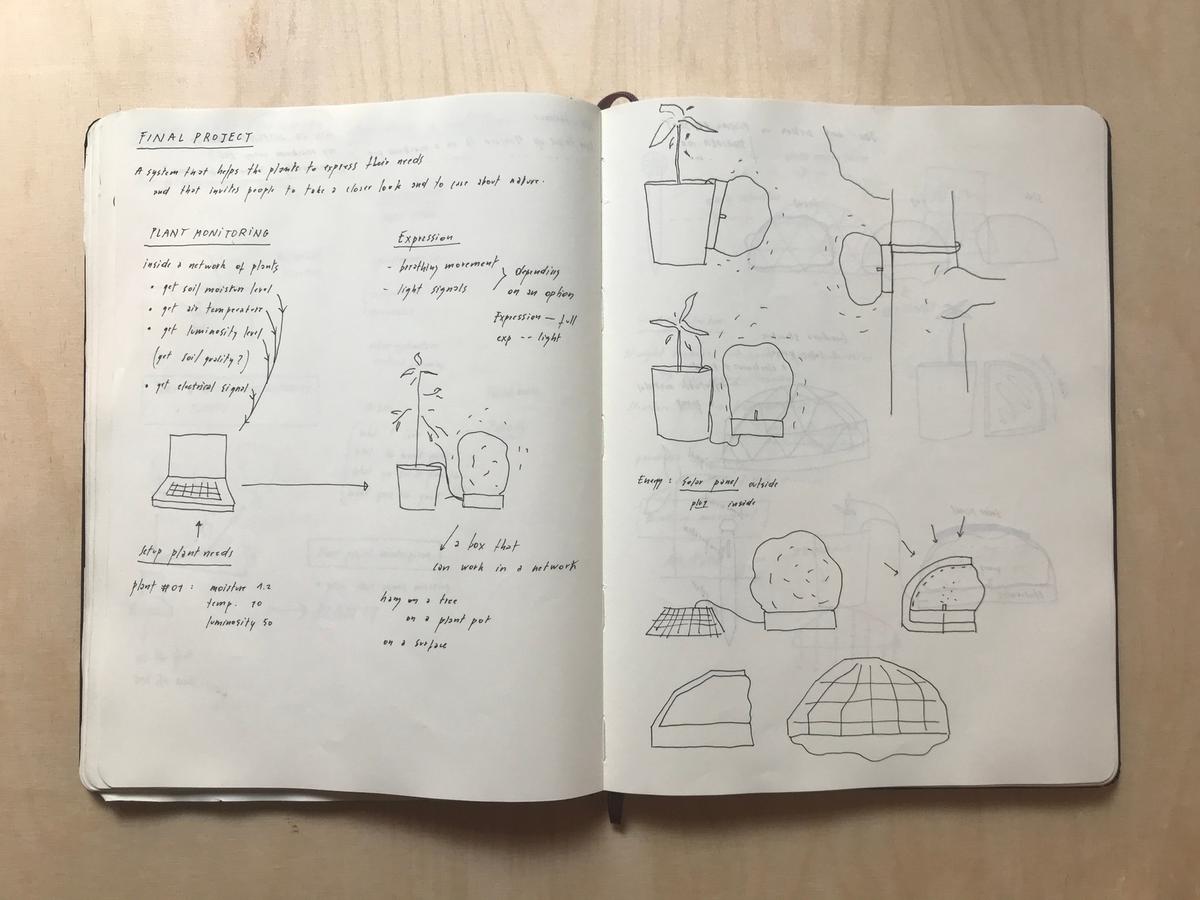 FINAL PROJECT
A system that helps the plants to express their needs
and that invites people to take a closer look and to care about nature.
PLANT MONITORING
inside a network of plants
• get soil moisture level
• get air temperature
• get luminosity level
(get soil quality?)
• get electrical signal
Setup plant needs
plant #01 : moisture 1.2
temp. 10
luminosity 50
Expression
- breathing movement
- light signals
depending
on an option
Expression — full
exp -- light
a box that
can work in a network
hang on a tree
on a plant pot
on a surface
Energy : solar panel outside
plug inside